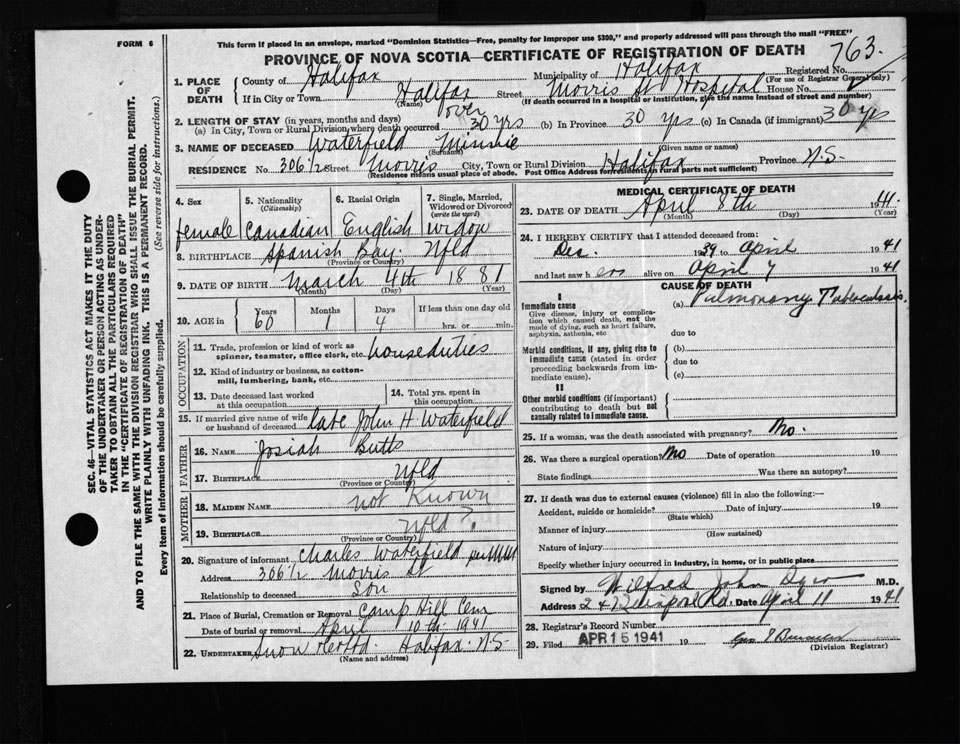 FORM 6
This form if placed in an envelope, marked "Dominion Statistics—Free, penalty for improper use $300," and properly addressed will pass through the mail "FREE"
PROVINCE OF NOVA SCOTIA—CERTIFICATE OF REGISTRATION OF DEATH
763
1. PLACE OF DEATH
County of Halifax Municipality of Halifax Registered No.
(For use of Registrar General only)
If in City or Town Halifax Street Morris St Hospital House No.
(Name) (If death occurred in a hospital or institution, give the name instead of street and number)
2. LENGTH OF STAY (in years, months and days)
(a) In City, Town or Rural Division where death occurred over 30 yrs (b) In Province 30 yrs (c) In Canada (if immigrant) 30 yrs
3. NAME OF DECEASED Waterfield Minnie
(Surname) (Given name or names)
RESIDENCE No. 306 1/2 Street Morris City, Town or Rural Division Halifax Province N.S.
(Residence means usual place of abode. Post Office Address for residents in rural parts not sufficient)
4. Sex 5. Nationality (Citizenship) 6. Racial Origin 7. Single, Married, Widowed or Divorced (write the word)
female Canadian English widow
8. BIRTHPLACE Spanish Bay Nfld
(Province or Country)
9. DATE OF BIRTH March 4th 1881
(Month) (Day) (Year)
10. AGE in Years Months Days If less than one day old
60 1 4 hrs. or min.
OCCUPATION
11. Trade, profession or kind of work as spinner, teamster, office clerk, etc. house duties
12. Kind of industry or business, as cotton-mill, lumbering, bank, etc.
13. Date deceased last worked at this occupation
14. Total yrs. spent in this occupation
15. If married give name of wife or husband of deceased Late John H Waterfield
FATHER
16. NAME Josiah Butts
17. BIRTHPLACE Nfld
(Province or Country)
MOTHER
18. MAIDEN NAME not Known
19. BIRTHPLACE Nfld ?
(Province or Country)
20. Signature of informant Charles Waterfield per
Address 306 1/2 Morris St
Relationship to deceased Son
21. Place of Burial, Cremation or Removal Camp Hill Cem
Date of burial or removal April 10th 1941
22. UNDERTAKER Snow Halifax N.S.
(Name and address)
MEDICAL CERTIFICATE OF DEATH
23. DATE OF DEATH April 8th 1941
(Month) (Day) (Year)
24. I HEREBY CERTIFY that I attended deceased from:
Dec. 1939 to April 1941
and last saw her alive on April 7 1941
CAUSE OF DEATH
I
Immediate cause
Give disease, injury or complication which caused death, not the mode of dying, such as heart failure, asphyxia, asthenia, etc
(a) Pulmonary Tuberculosis.
due to
Morbid conditions, if any, giving rise to immediate cause (stated in order proceeding backwards from immediate cause).
(b)
due to
(c)
II
Other morbid conditions (if important) contributing to death but not causally related to immediate cause.
25. If a woman, was the death associated with pregnancy? No.
26. Was there a surgical operation? No Date of operation 19
State findings Was there an autopsy?
27. If death was due to external causes (violence) fill in also the following:—
Accident, suicide or homicide? Date of injury 19
(State which)
Manner of injury
(How sustained)
Nature of injury
Specify whether injury occurred in industry, in home, or in public place
Signed by Wilfred John Dyer M.D.
Address Date April 11 1941
28. Registrar's Record Number
29. Filed APR 15 1941 19
(Division Registrar)
SEC. 46—VITAL STATISTICS ACT MAKES IT THE DUTY
OF THE UNDERTAKER OR PERSON ACTING AS UNDER-
TAKER TO OBTAIN ALL THE PARTICULARS REQUIRED
IN THE "CERTIFICATE OF REGISTRATION OF DEATH"
AND TO FILE THE SAME WITH THE DIVISION REGISTRAR WHO SHALL ISSUE THE BURIAL PERMIT.
WRITE PLAINLY WITH UNFADING INK. THIS IS A PERMANENT RECORD.
Every item of information should be carefully supplied. (See reverse side for instructions.)